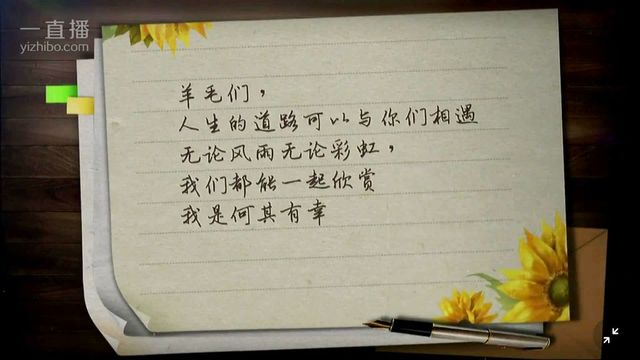 一直播
yizhibo.com
羊毛们，
人生的道路可以与你们相遇
无论风雨无论彩虹，
我们都能一起欣赏
我是何其有幸